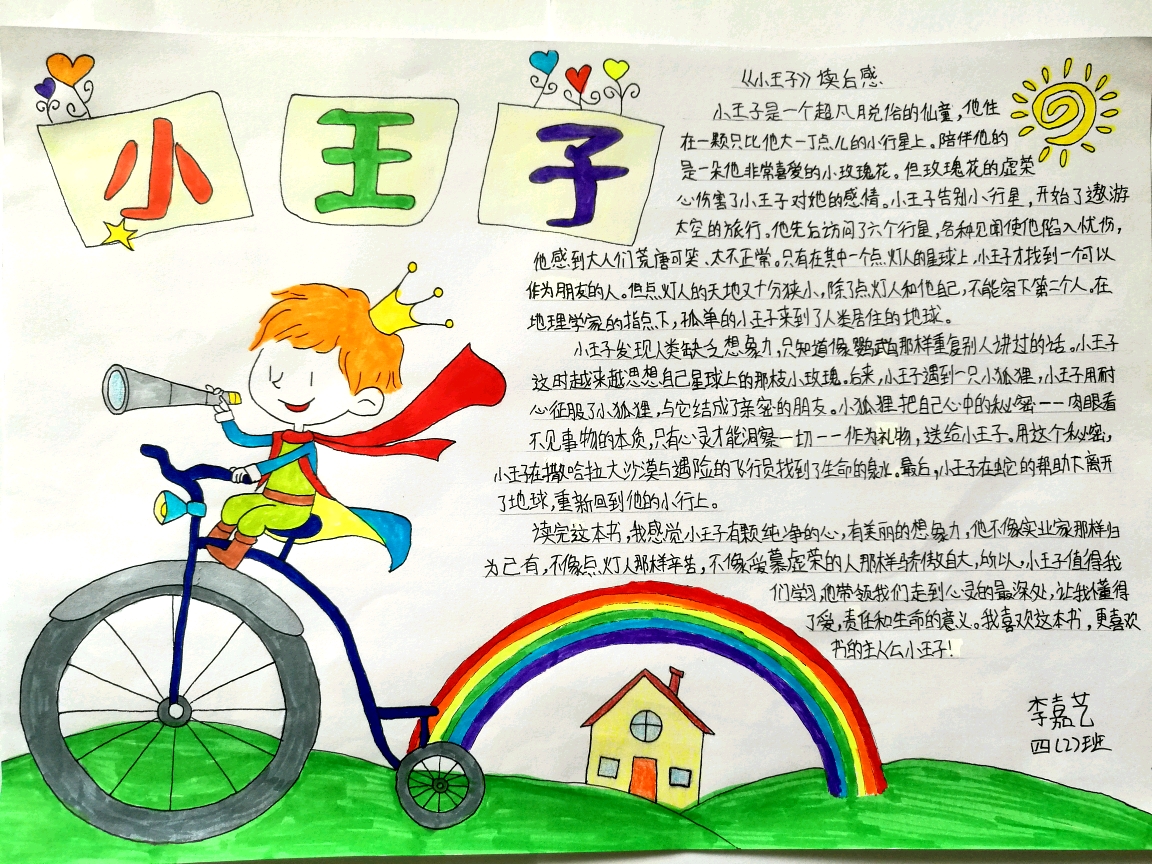 小王子
《小王子》读后感
小王子是一个超凡脱俗的仙童，他住
在一颗只比他大一丁点儿的小行星上。陪伴他的
是一朵他非常喜爱的小玫瑰花。但玫瑰花的虚荣
心伤害了小王子对她的感情。小王子告别小行星，开始了遨游
太空的旅行。他先后访问了六个行星，各种见闻使他陷入忧伤，
他感到大人们荒唐可笑、太不正常。只有在其中一个点灯人的星球上，小王子才找到一个可以
作为朋友的人。但点灯人的天地又十分狭小，除了点灯人和他自己，不能容下第二个人。在
地理学家的指点下，孤单的小王子来到了人类居住的地球。
小王子发现人类缺乏想象力，只知道像鹦鹉那样重复别人讲过的话。小王子
这时越来越思想自己星球上的那枝小玫瑰。后来，小王子遇到一只小狐狸，小王子用耐
心征服了小狐狸，与它结成了亲密的朋友。小狐狸把自己心中的秘密——肉眼看
不见事物的本质，只有心灵才能洞察一切——作为礼物，送给小王子。用这个秘密，
小王子在撒哈拉大沙漠与遇险的飞行员找到了生命的泉水。最后，小王子在蛇的帮助下离开
了地球，重新回到他的小行上。
读完这本书，我感觉小王子有颗纯净的心，有美丽的想象力，他不像实业家那样归
为己有，不像点灯人那样辛苦，不像爱慕虚荣的人那样骄傲自大，所以，小王子值得我
们学习，他带领我们走到心灵的最深处，让我懂得
了爱，责任和生命的意义。我喜欢这本书，更喜欢
书的主人公小王子！
李嘉艺
四（2）班